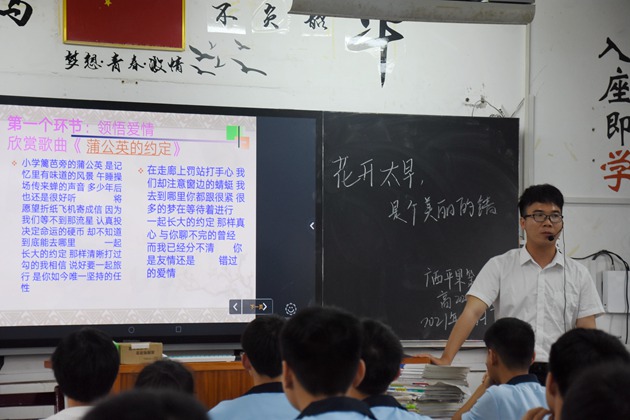 不负韶
梦想·青春·激情
入座即学
第一个环节：领悟爱情
欣赏歌曲《 蒲公英的约定》
小学篱芭旁的蒲公英 是记
忆里有味道的风景 午睡操
场传来蝉的声音 多少年后
也还是很好听 将
愿望折纸飞机寄成信 因为
我们等不到那流星 认真投
决定命运的硬币 却不知道
到底能去哪里 一起
长大的约定 那样清晰打过
勾的我相信 说好要一起旅
行 是你如今唯一坚持的任
性
在走廊上罚站打手心 我
们却注意窗边的蜻蜓 我
去到哪里你都跟很紧 很
多的梦在等待着进行
一起长大的约定 那样真
心 与你聊不完的曾经
而我已经分不清 你
是友情还是 错过
的爱情
下一页
花开太早，
是个美丽的错
广西平果
高
2021年